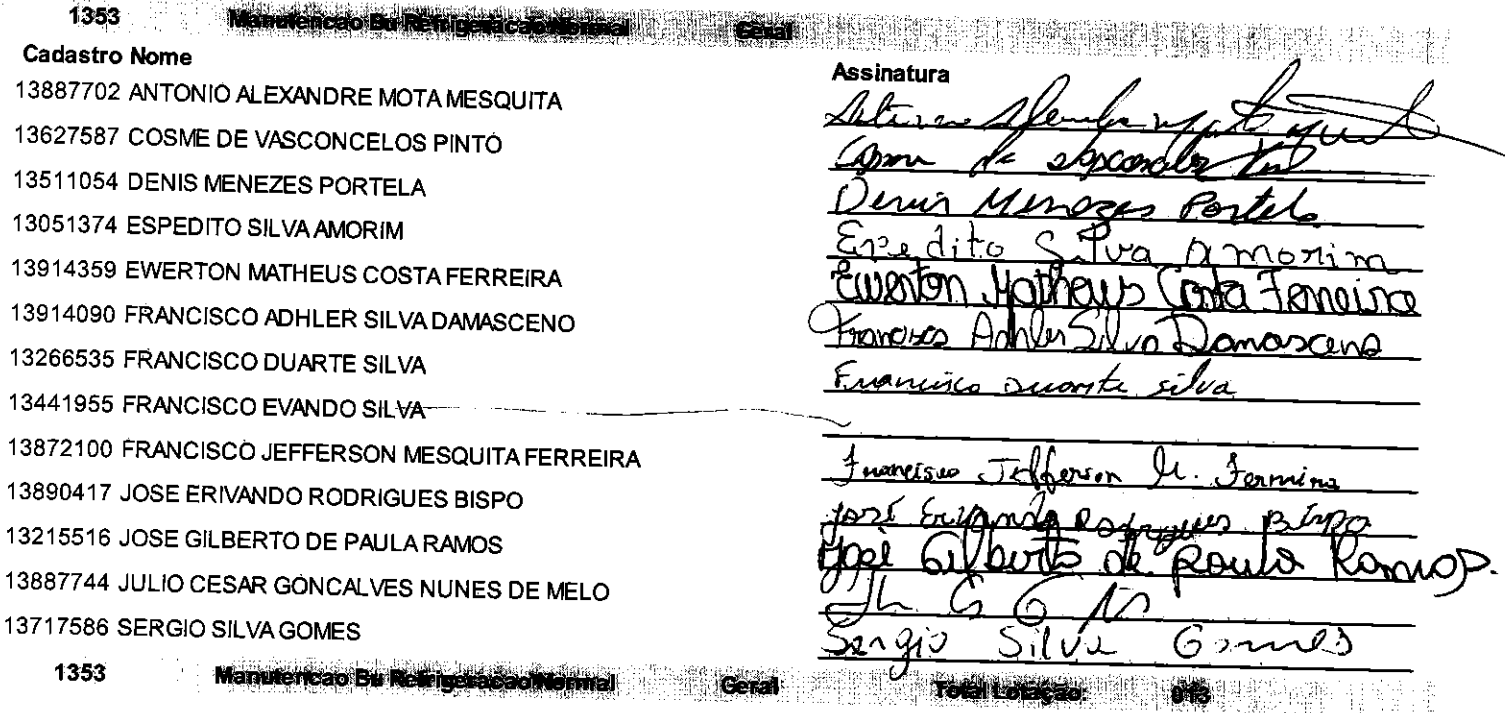 1353 Manutencao Bu Refrigeracao Normal Geral
Cadastro Nome Assinatura
13887702 ANTONIO ALEXANDRE MOTA MESQUITA
13627587 COSME DE VASCONCELOS PINTO Cosme de Vasconcelos
13511054 DENIS MENEZES PORTELA Denis Menezes Portela
13051374 ESPEDITO SILVA AMORIM Espedito Silva Amorim
13914359 EWERTON MATHEUS COSTA FERREIRA Ewerton Matheus Costa Ferreira
13914090 FRANCISCO ADHLER SILVA DAMASCENO Francisco Adhler Silva Damasceno
13266535 FRANCISCO DUARTE SILVA Francisco Duarte silva
13441955 FRANCISCO EVANDO SILVA
13872100 FRANCISCO JEFFERSON MESQUITA FERREIRA Francisco Jefferson M. Ferreira
13890417 JOSE ERIVANDO RODRIGUES BISPO José Erivando Rodrigues Bispo
13215516 JOSE GILBERTO DE PAULA RAMOS José Gilberto de Paula Ramos.
13887744 JULIO CESAR GONCALVES NUNES DE MELO
13717586 SERGIO SILVA GOMES Sergio Silva Gomes
1353 Manutencao Bu Refrigeracao Normal Geral Total Lotação: 013